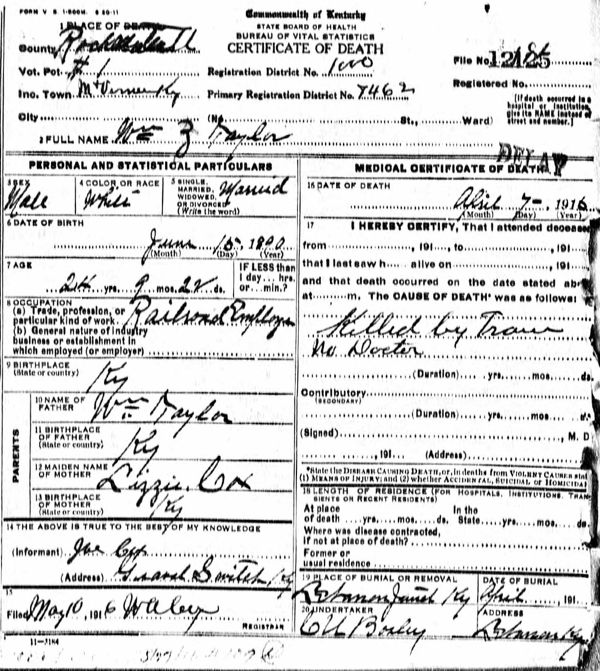 FORM V. S. 1-500M. 8 30-11
Commonwealth of Kentucky
STATE BOARD OF HEALTH
BUREAU OF VITAL STATISTICS
CERTIFICATE OF DEATH
1 PLACE OF DEATH
County
Vot. Pct. # 1
Inc. Town Mt Vernon Ky
City
Registration District No.
Primary Registration District No. 7462
(No. St., Ward)
File No.
Registered No.
[If death occurred in a hospital or institution, give its NAME instead of street and number.]
2 FULL NAME Wm Z Taylor
DELAY
PERSONAL AND STATISTICAL PARTICULARS
3 SEX
Male
4 COLOR OR RACE
White
5 SINGLE, MARRIED, WIDOWED, OR DIVORCED (Write the word)
Married
6 DATE OF BIRTH
June 15, 1890
(Month) (Day) (Year)
7 AGE
24 yrs. 9 mos. 22 ds.
IF LESS than 1 day... hrs. or... min.?
8 OCCUPATION
(a) Trade, profession, or particular kind of work. Railroad Employe
(b) General nature of industry business or establishment in which employed (or employer)
9 BIRTHPLACE
(State or country)
Ky
PARENTS
10 NAME OF FATHER
Wm Taylor
11 BIRTHPLACE OF FATHER
(State or country)
Ky
12 MAIDEN NAME OF MOTHER
Lizzie Cox
13 BIRTHPLACE OF MOTHER
(State or country)
Ky
14 THE ABOVE IS TRUE TO THE BEST OF MY KNOWLEDGE
(Informant) Joe Cox
(Address) Switch Ky
15
Filed May 10, 1916
REGISTRAR
11-3184
MEDICAL CERTIFICATE OF DEATH
16 DATE OF DEATH
April 7- 1915
(Month) (Day) (Year)
17 I HEREBY CERTIFY, That I attended deceased
from , 191 , to , 191
that I last saw h alive on , 191
and that death occurred on the date stated ab
at m. The CAUSE OF DEATH* was as follows:
Killed by Train
No Doctor
(Duration) yrs. mos. ds.
Contributory
(SECONDARY)
(Duration) yrs. mos. ds.
(Signed) , M. D
, 191 (Address)
*State the DISEASE CAUSING DEATH, or, in deaths from VIOLENT CAUSES state
(1) MEANS OF INJURY; and (2) whether ACCIDENTAL, SUICIDAL or HOMICIDAL
18 LENGTH OF RESIDENCE (FOR HOSPITALS, INSTITUTIONS, TRANSIENTS OR RECENT RESIDENTS)
At place of death yrs. mos. ds.
In the State yrs. mos. ds.
Where was disease contracted,
if not at place of death?
Former or
usual residence
19 PLACE OF BURIAL OR REMOVAL
Lebanon Junct Ky
DATE OF BURIAL
April , 191
20 UNDERTAKER
ADDRESS
Lebanon Ky